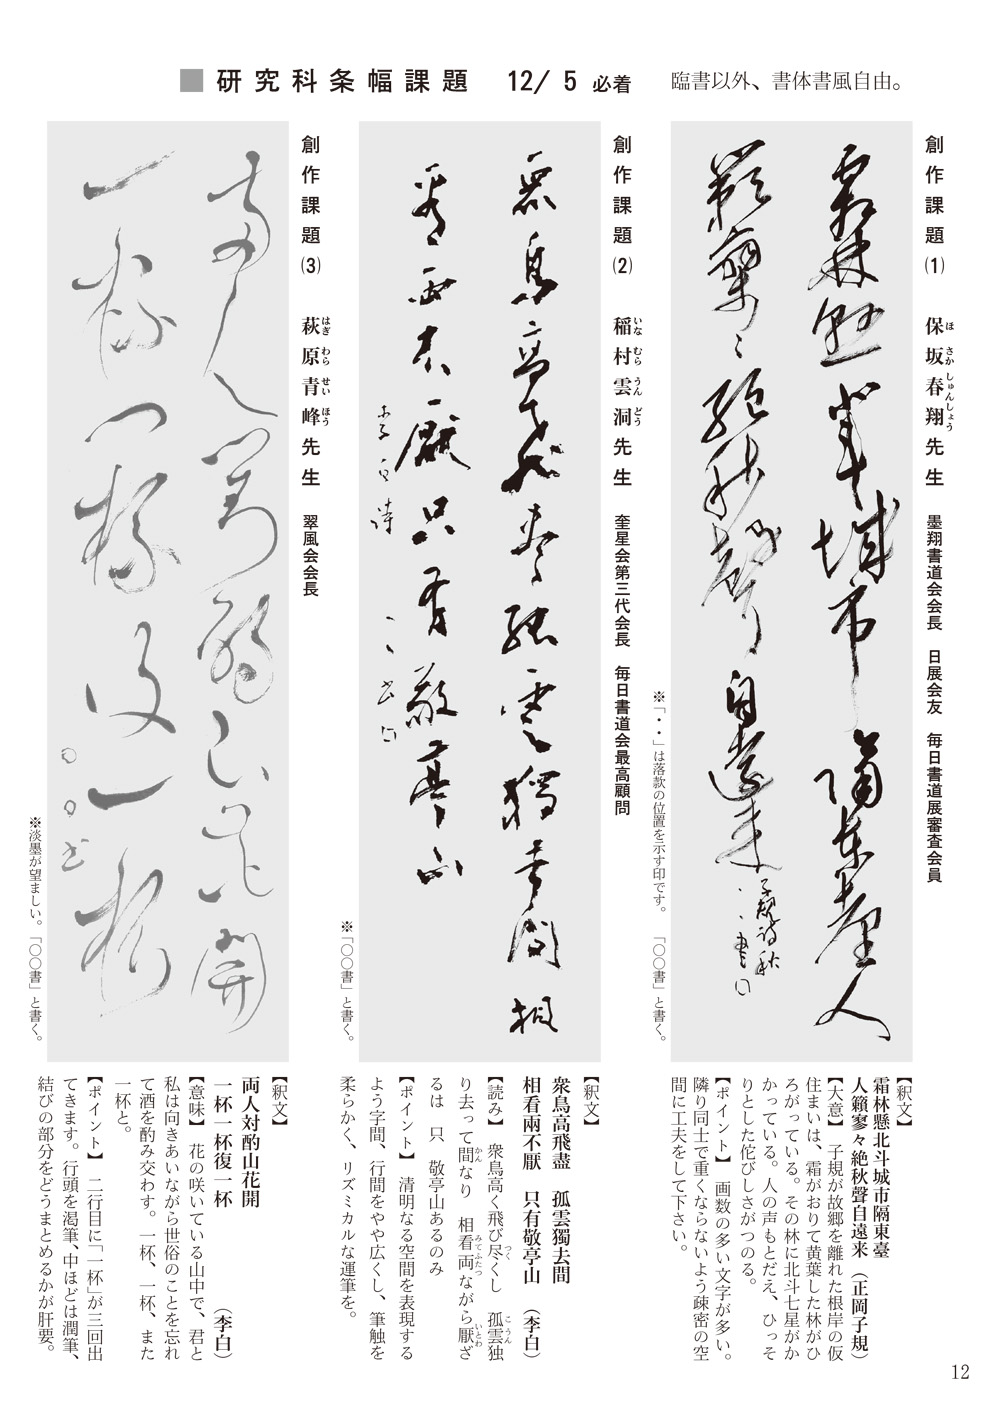 ■研究科条幅課題 12/5必着 臨書以外、書体書風自由。
創作課題(1) 保坂春翔先生 墨翔書道会会長 日展会友 毎日書道展審査会員
ほ さか しゅんしょう
霜林懸北斗城市隔東臺人
籟寥々絶秋聲自遠来 子規詩秋
・・書□
※「・・」は落款の位置を示す印です。 「〇〇書」と書く。
【釈文】
霜林懸北斗城市隔東臺
人籟寥々絶秋聲自遠来(正岡子規)
【大意】 子規が故郷を離れた根岸の仮
住まいは、霜がおりて黄葉した林がひ
ろがっている。その林に北斗七星がか
かっている。人の声もとだえ、ひっそ
りとした侘びしさがつのる。
【ポイント】 画数の多い文字が多い。
隣り同士で重くならないよう疎密の空
間に工夫をして下さい。
創作課題(2) 稲村雲洞先生 奎星会第三代会長 毎日書道会最高顧問
いな むら うん どう
衆鳥高飛盡孤雲獨去間相
看兩不厭只有敬亭山
李白詩
・・書□
※「〇〇書」と書く。
【釈文】
衆鳥高飛盡 孤雲獨去間
相看兩不厭 只有敬亭山 (李白)
【読み】 衆鳥高く飛び尽くし 孤雲独
つ こうん
り去って間なり 相看両ながら厭ざ
かん みてふたつ いとわ
るは 只 敬亭山あるのみ
【ポイント】 清明なる空間を表現する
よう字間、行間をやや広くし、筆触を
柔らかく、リズミカルな運筆を。
創作課題(3) 萩原青峰先生 翠風会会長
はぎ わら せい ほう
両人対酌山花開
一杯一杯復一杯
〇〇書
※淡墨が望ましい。「〇〇書」と書く。
【釈文】
両人対酌山花開
一杯一杯復一杯 (李白)
【意味】 花の咲いている山中で、君と
私は向きあいながら世俗のことを忘れ
て酒を酌み交わす。一杯、一杯、また
一杯と。
【ポイント】 二行目に「一杯」が三回出
てきます。行頭を渇筆、中ほどは潤筆、
結びの部分をどうまとめるかが肝要。
12